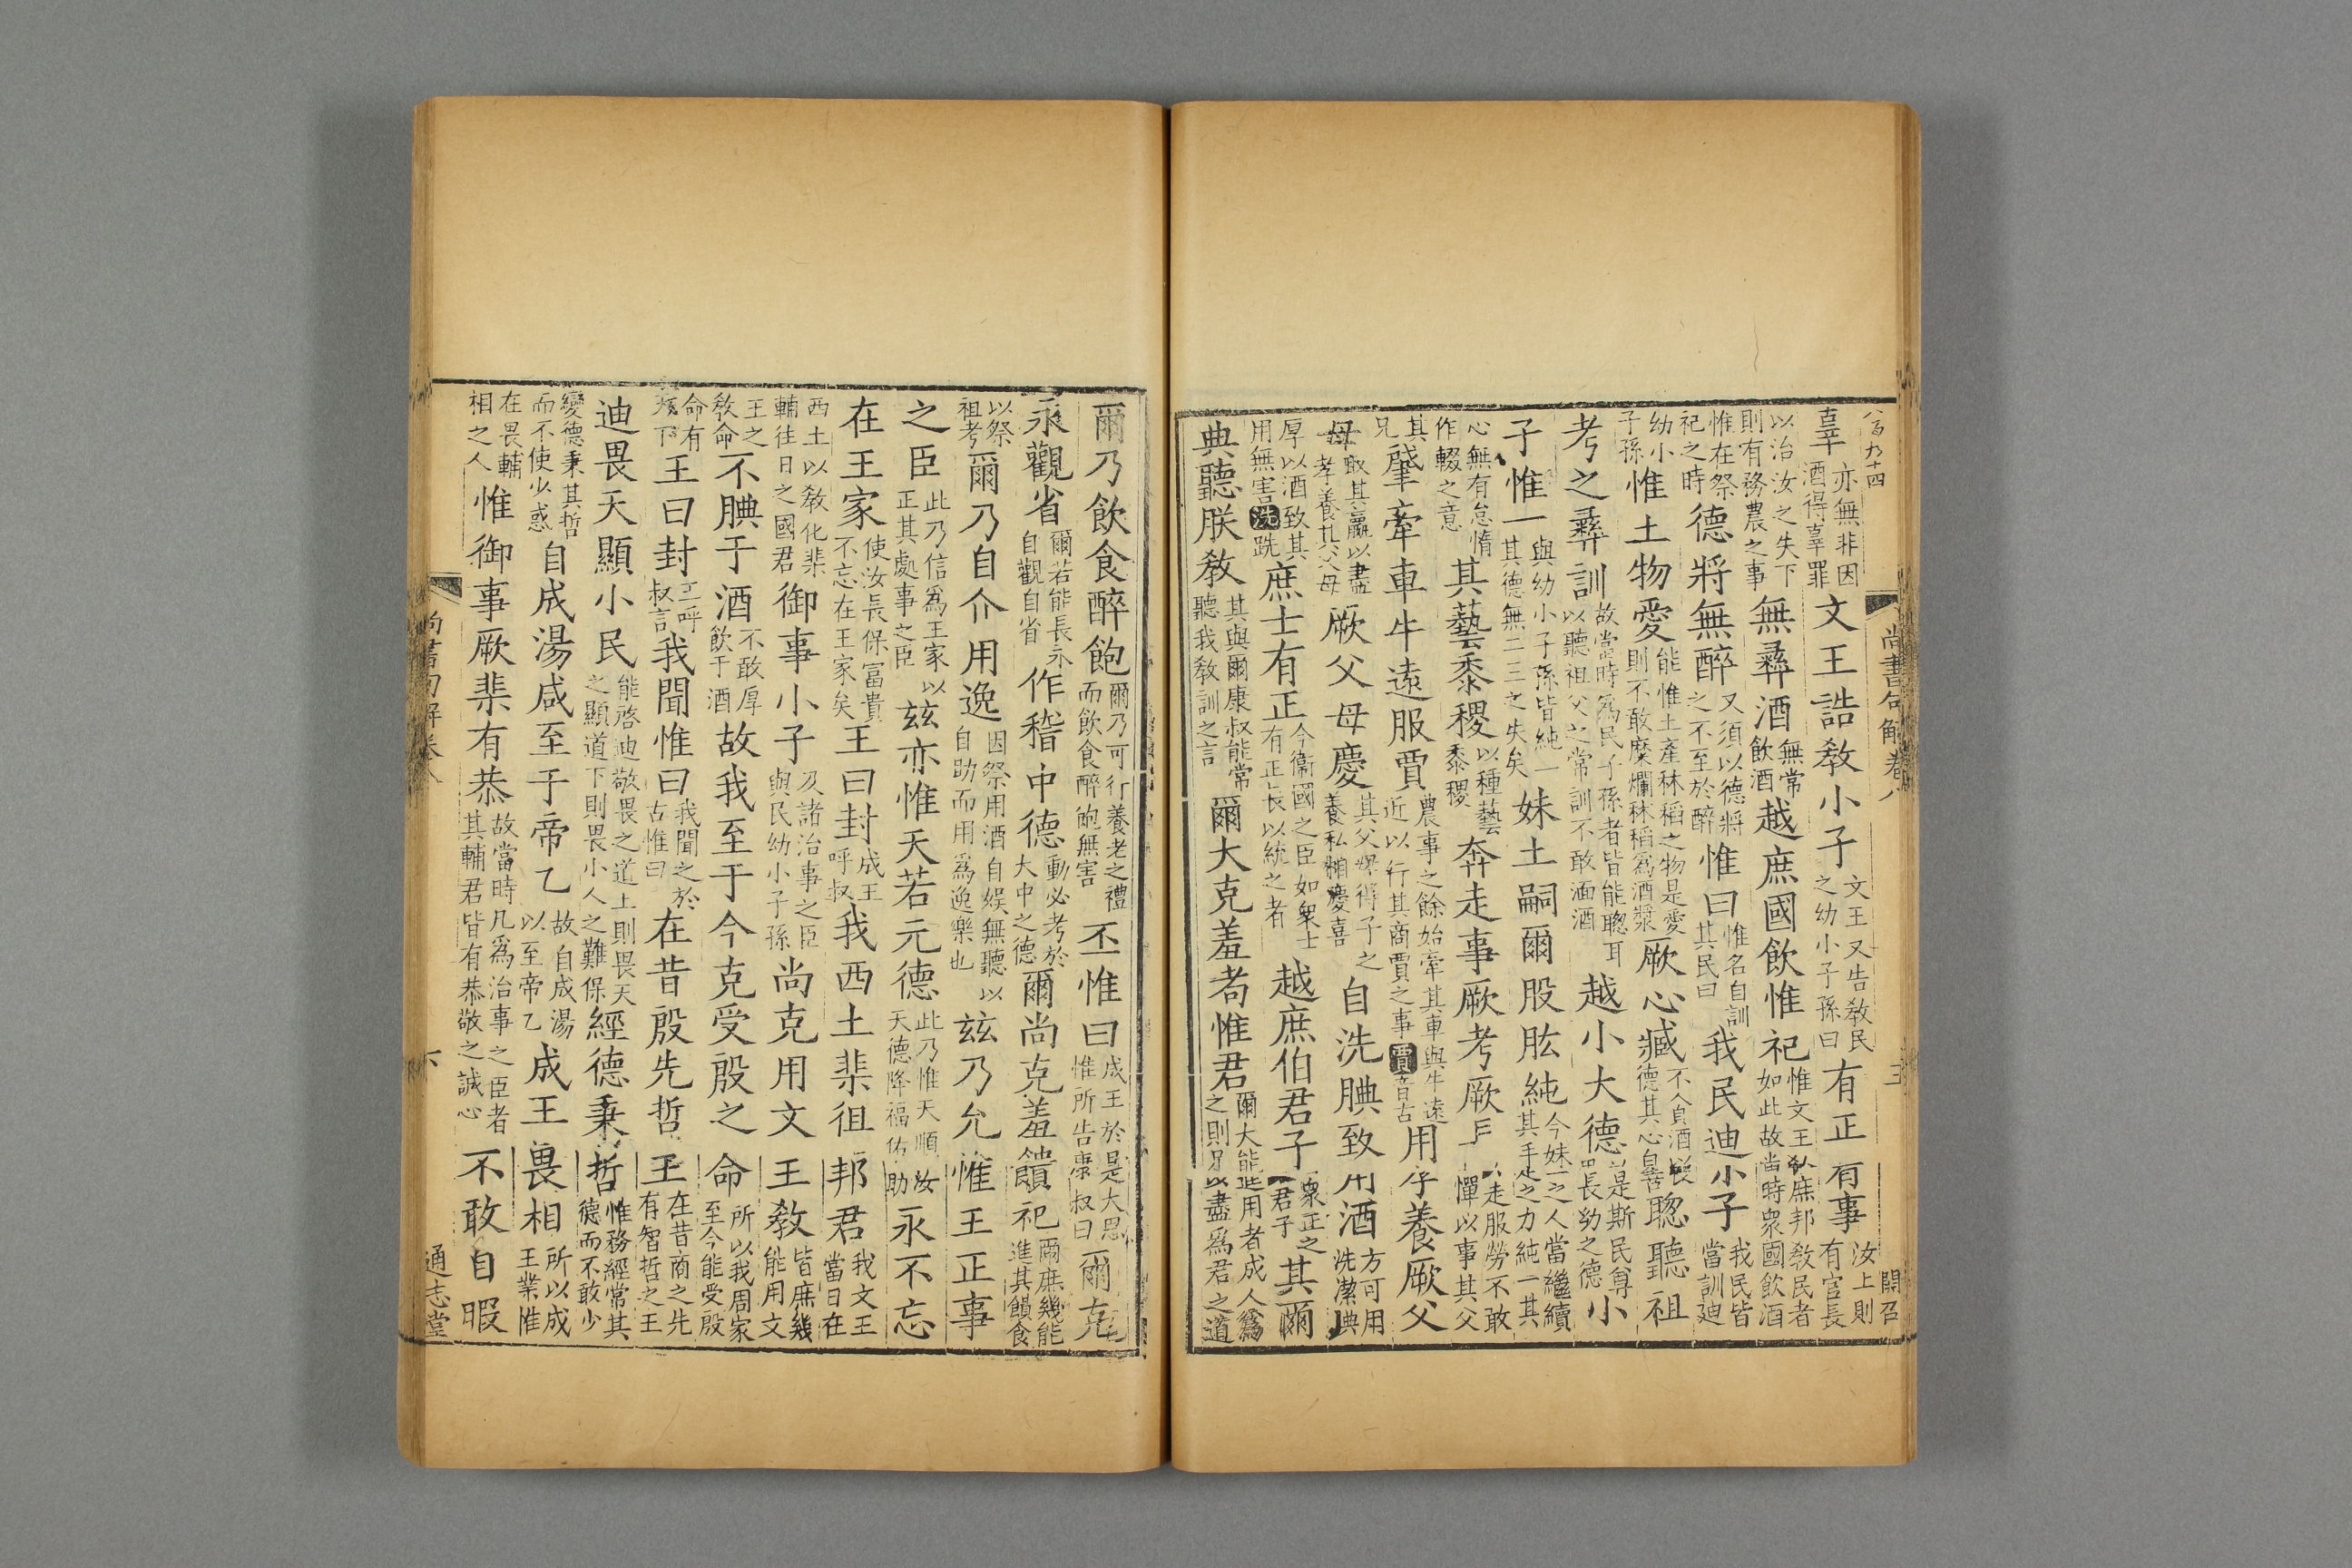 八百九十四 尚書句解卷八
辜亦無非因酒得辜罪文王誥敎小子文王又告敎民之幼小子孫曰有正有事汝上則有官長
以治汝之失下則有務農之事無彝酒無常飲酒越庶國飲惟祀惟文王敎庶邦敎民者如此故當時衆國飲酒
惟在祭祀之時德將無醉又須以德將之不至於醉惟曰惟名自訓其民曰我民迪小子我民皆當訓廸
幼小子孫惟土物愛能惟土產秫稻之物是愛則不敢糜爛秫稻爲酒漿厥心臧不負酒德其心自善聰聽祖
考之彝訓故當時爲民子孫者皆能聰耳以聽祖父之常訓不敢湎酒越小大德於是斯民尊長幼之德小
子惟一與幼小子孫皆純一其德無二三之失矣妹土嗣爾股肱純今妹土之人當繼續其手足之力純一其
心無有怠惰作輟之意其藝黍稷以種藝黍稷奔走事厥考厥長奔走服勞不敢憚以事其父
其兄肇牽車牛遠服賈農事之餘始牽其車與牛遠近以行其商賈之事賈音古用孝養厥父
母取其贏以盡孝養其父母厥父母慶其父母得子之養私相慶喜自洗腆致用酒方可用洗潔腆
厚以酒致其用無害洗跣庶士有正今衞國之臣如衆士有正長以統之者越庶伯君子衆正之君子其爾
典聽朕敎其與爾康叔能常聽我敎訓之言爾大克羞耇惟君爾大能進用耇成人爲之則足以盡爲君之道
爾乃飲食醉飽爾乃可行養老之禮而飲食醉飽無害丕惟曰成王於是大思惟所告康叔曰爾克
永觀省爾若能長永自觀自省作稽中德動必考於大中之德爾尚克羞饋祀爾庶幾能進其饋食
以祭祖考爾乃自介用逸因祭用酒自娛無聽以自助而用爲逸樂也茲乃允惟王正事
之臣此乃信爲王家以正其處事之臣茲亦惟天若元德此乃惟天順汝天德降福佑助永不忘
在王家使汝長保富貴不忘在王家矣王曰封成王呼叔我西土棐徂邦君我文王當日在
西土以敎化棐輔往日之國君御事小子及諸治事之臣與民幼小子孫尚克用文王敎皆庶幾能用文
王之敎命不腆于酒不敢厚飲于酒故我至于今克受殷之命所以我周家至今能受殷
命有天下王曰封王呼叔言我聞惟曰我聞之於古惟曰在昔殷先哲王在昔商之先有智哲之王
迪畏天顯小民能啓迪敬畏之道上則畏天之顯道下則畏小人之難保經德秉哲惟務經常其德而不敢少
變德秉其哲而不使少惑自成湯咸至于帝乙故自成湯以至帝乙成王畏相所以成王業惟
在畏輔相之人惟御事厥棐有恭故當時凡爲治事之臣者其輔君皆有恭敬之誠心不敢自暇
尚書句解卷八 六 通志堂